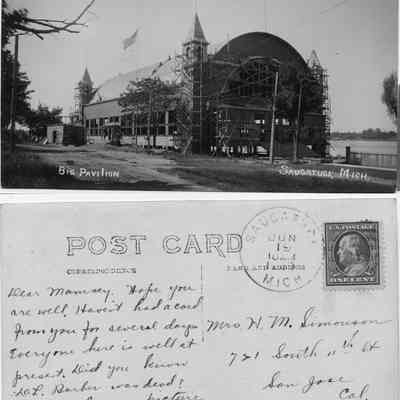 Big Pavilion
Saugatuck, Mich.
POST CARD
CORRESPONDENCE
NAME AND ADDRESS
SAUGATUCK
JUN
19
MICH
U.S. POSTAGE
ONE CENT
Dear Mamsey. Hope you
are well. Haven't had a card
from you for several days
Everyone here is well at
present. Did you know
Barber was dead!
picture
Mrs. H. M. Simonson
721 South 11th St
San Jose
Cal.